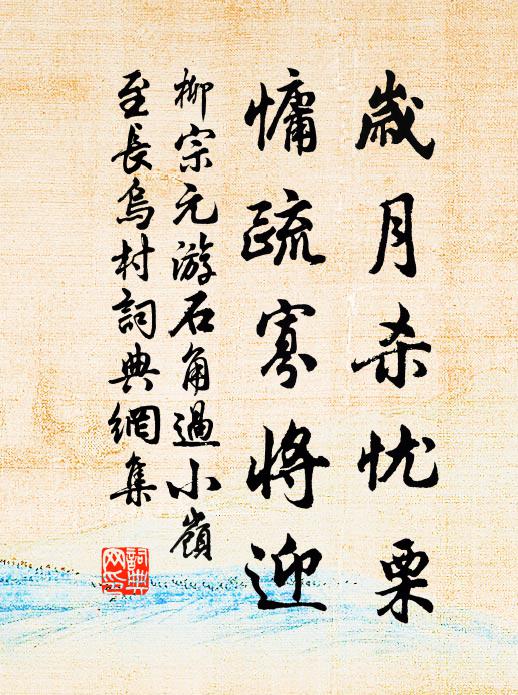 歲月杀忧栗
慵疏寡將迎
柳宗元游石角過小嶺
至長烏村詞典網集
詞典
网印